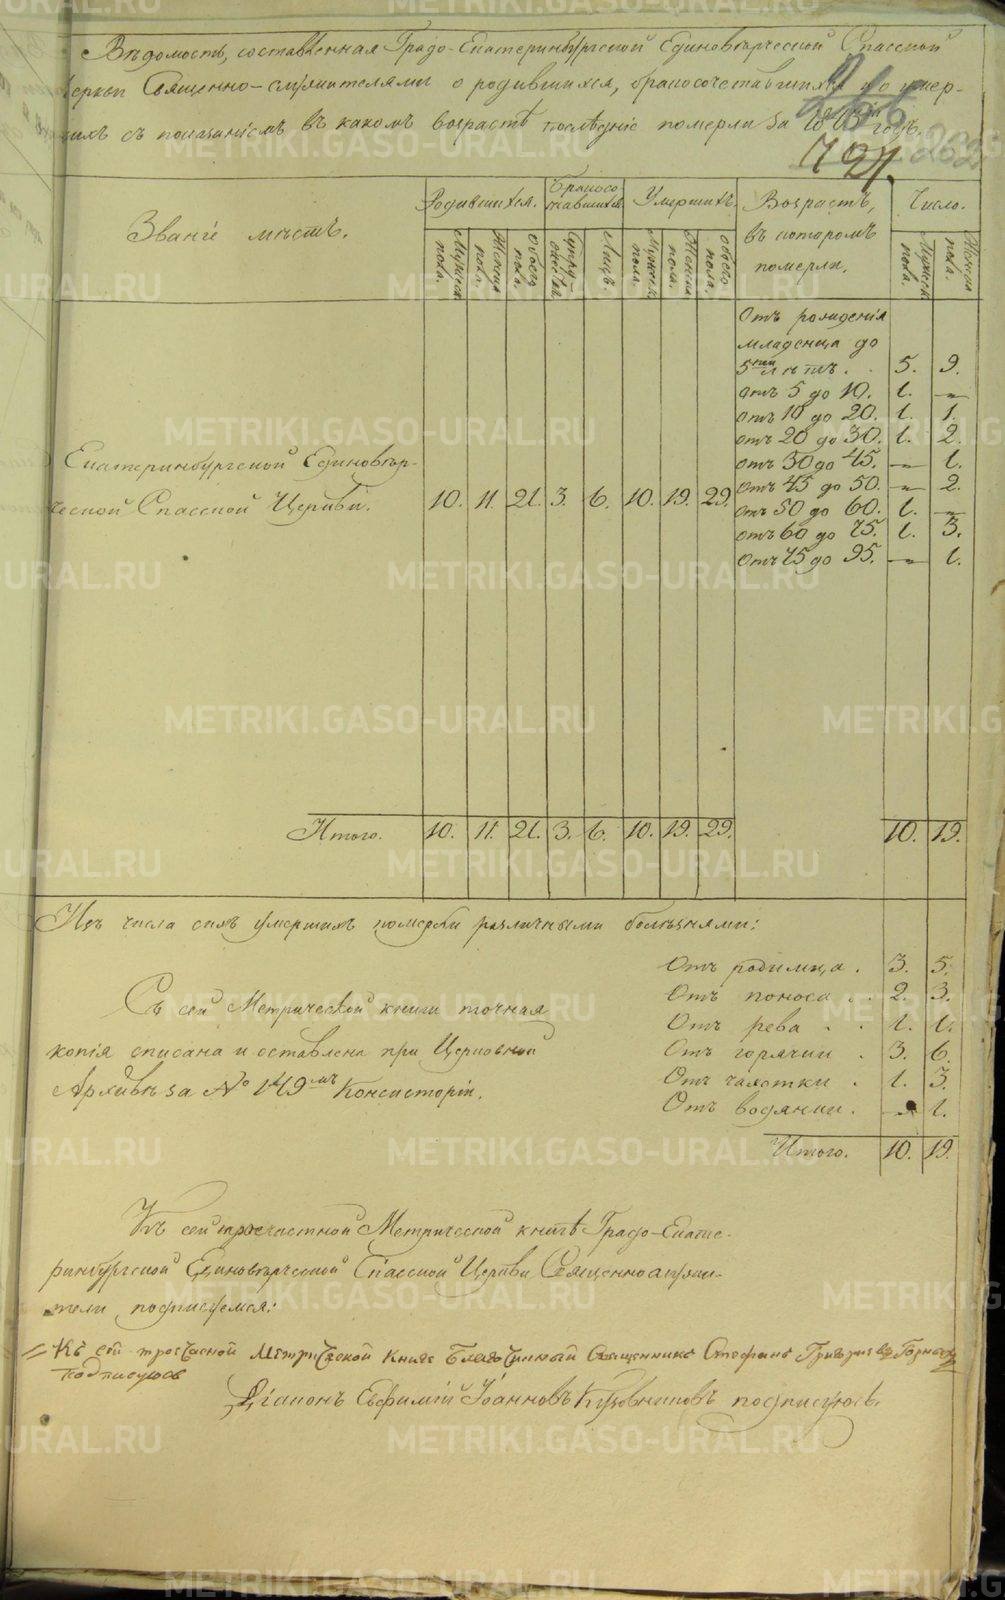 Вѣдомость, составленная Градо-Екатеринбургской Единовѣрческой Спасской
Церкви Священно-служителями о родившихся, бракосочетавшихся и о умер-
шихъ съ показанiемъ въ какомъ возрастѣ послѣднiе померли за годъ.
791.
Званiе мѣстъ.
Родившихся.
Бракосо четавшихся
Умершихъ.
Возрастъ, въ которомъ померли.
Число.
Мужеск пола.
Женска пола.
Обоего пола.
Супру- жествъ
Лицъ.
Мужеск. пола.
Женска пола.
Обоего пола.
Мужеск пола.
Женска пола.
Отъ рожденiя
младенца до
5ти лѣтъ. . 5. 9.
Отъ 5 до 10. 1. —
Отъ 10 до 20. 1. 1.
Отъ 20 до 30. 1. 2.
Отъ 30 до 45. — 1.
Отъ 45 до 50. — 2.
Отъ 50 до 60. 1. —
Отъ 60 до 75. 1. 3.
Отъ 75 до 95. — 1.
Екатеринбургской Единовѣр-
ческой Спасской Церкви. 10. 11. 21. 3. 6. 10. 19. 29.
Итого. 10. 11. 21. 3. 6. 10. 19. 29. 10. 19.
Изъ числа сихъ умершихъ померли различными болѣзнями:
Отъ родимца . 3. 5.
Отъ поноса . . 2. 3.
Отъ рева . . 1. 1.
Отъ горячки . 3. 6.
Отъ чахотки . 1. 3.
Отъ водянки . — 1.
Итого. 10. 19.
Съ сей Метрической книги точная
копiя списана и оставлена при Церковной
Архивѣ за № 149мъ Консисторiи.
Къ сей троечастной Метрической книгѣ Градо-Екате-
ринбургской Единовѣрческой Спасской Церкви Священнослужи-
тели подписуемся:
Къ сей троечасной Метрической книге Благочинный Священникъ Стефанъ
подписуюсь
Дiаконъ Евфимiй Iоанновъ подписуюсь.
METRIKI.GASO-URAL.RU